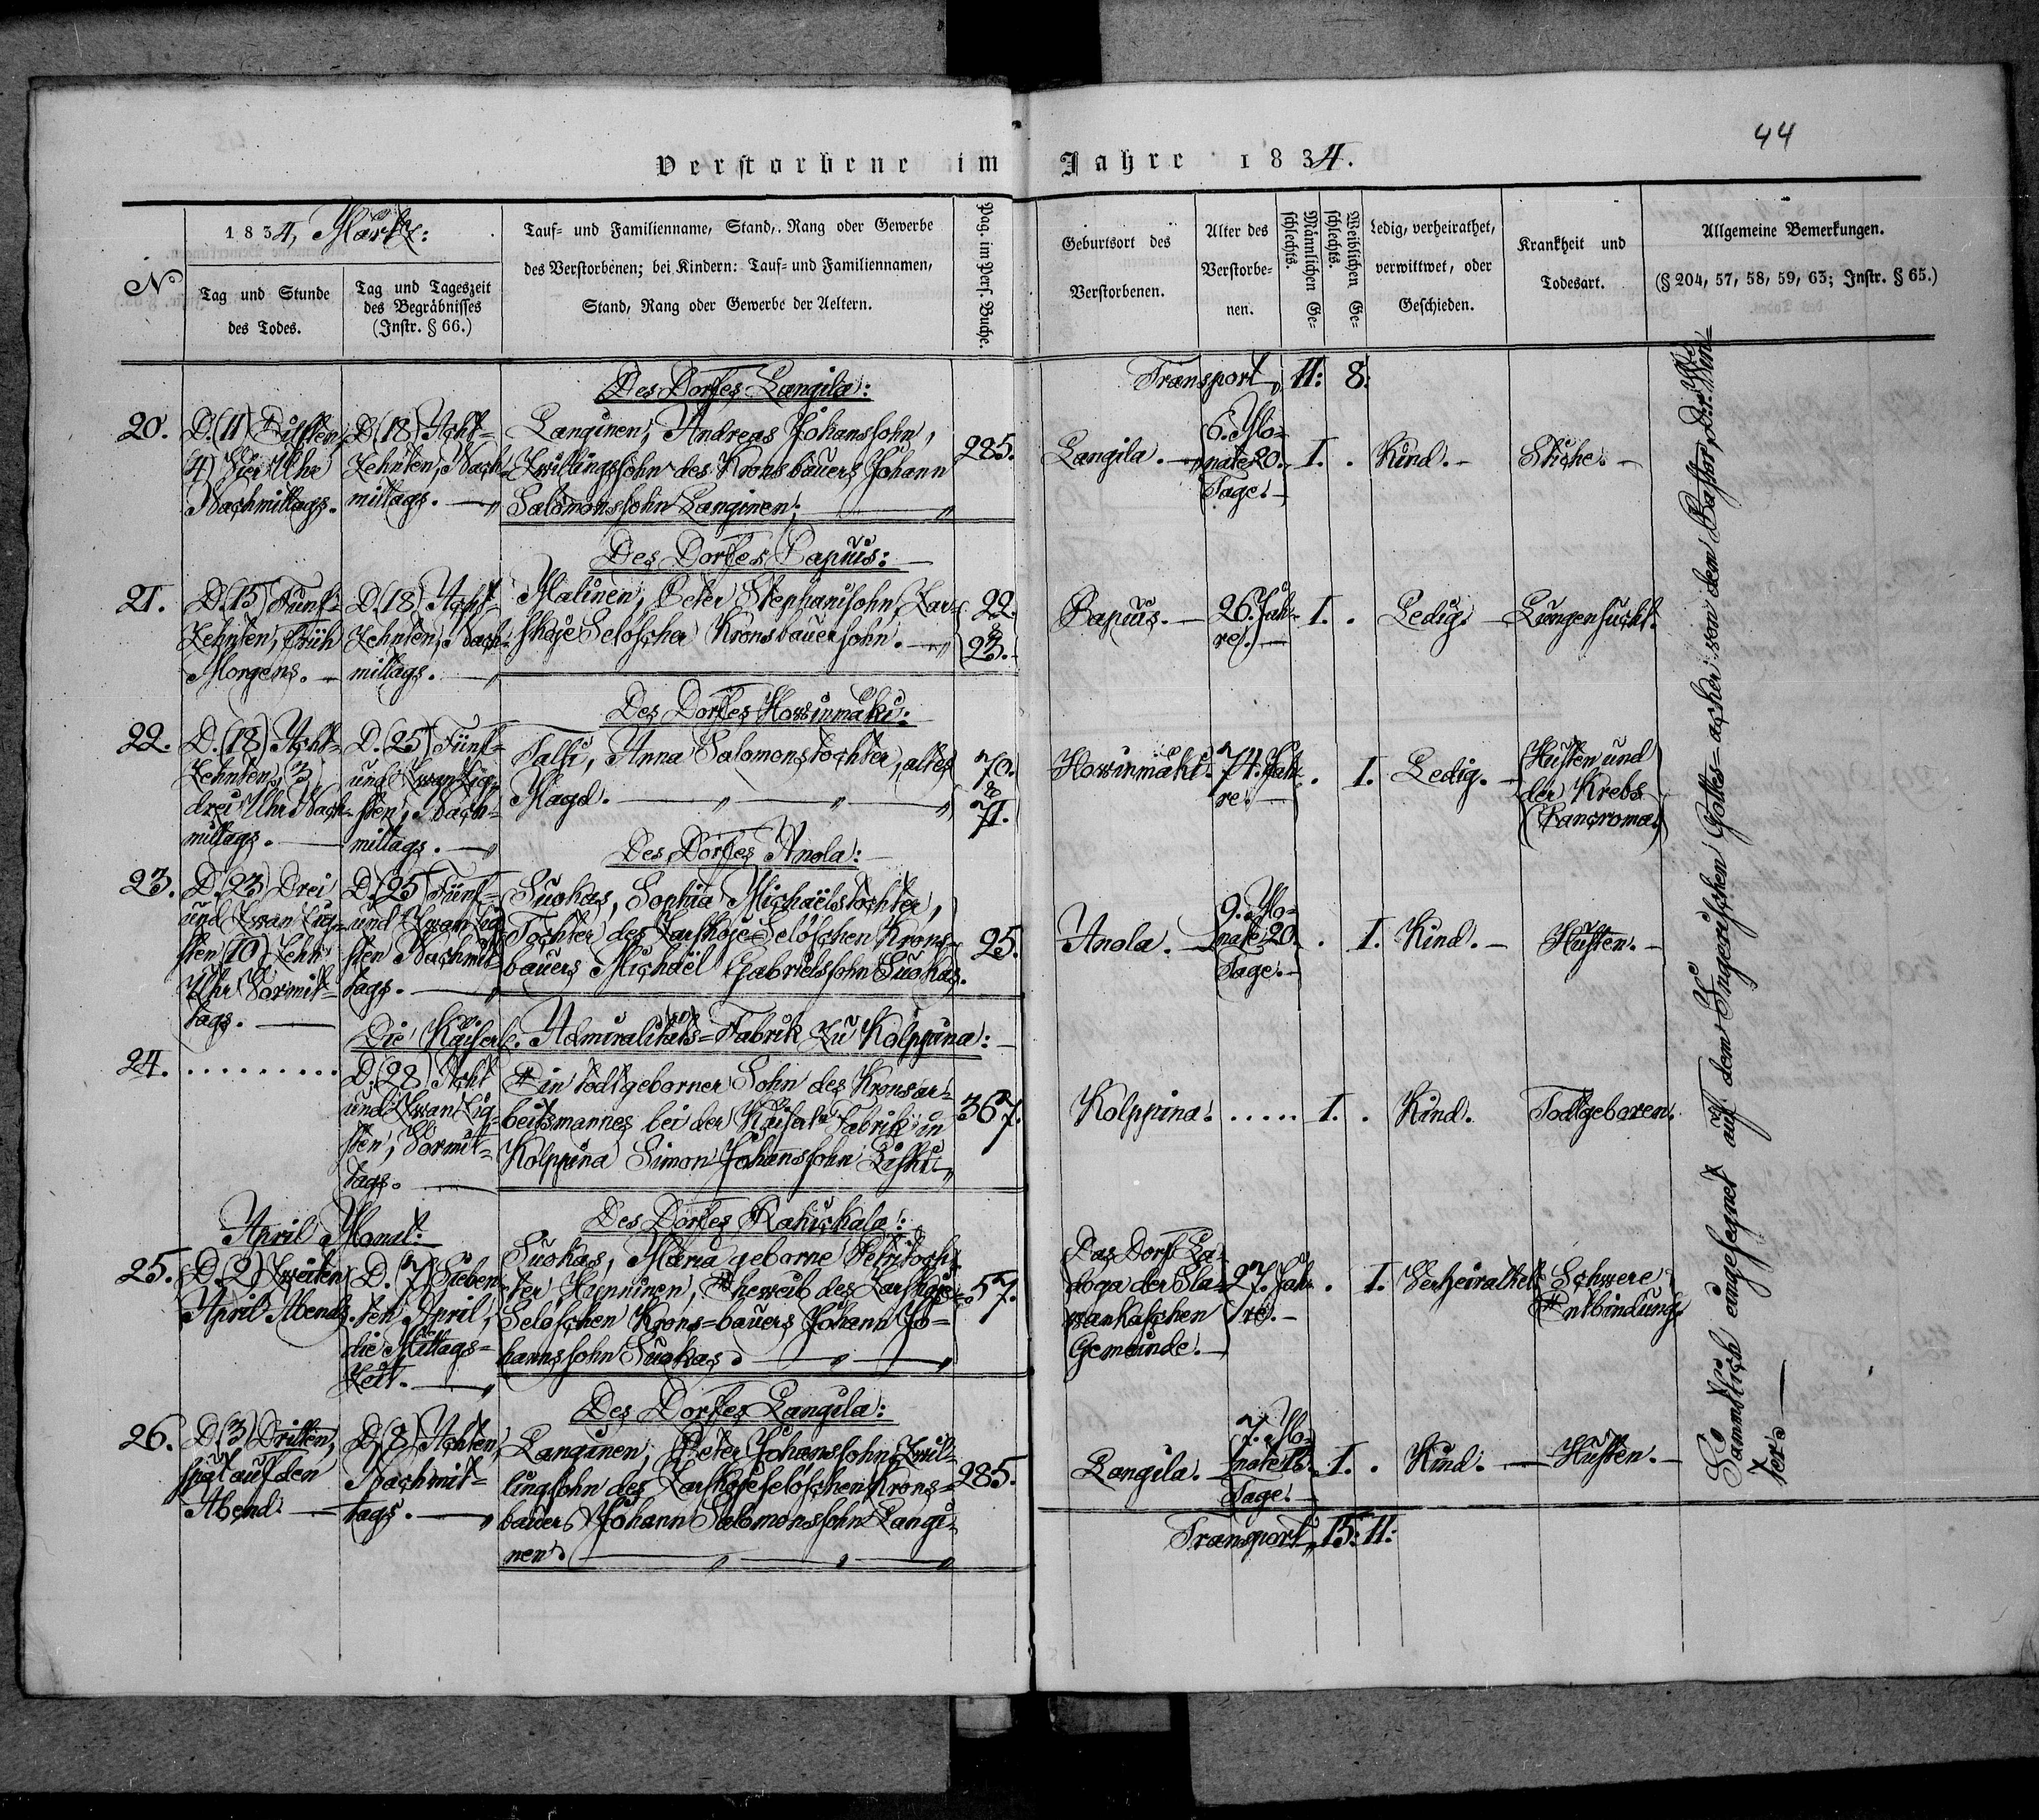 44
Verstorbene im Jahre 1834.
No
1834, Märtz:
Tag und Stunde
des Todes.
Tag und Tageszeit
des Begräbnisses
(Instr. § 66.)
Tauf- und Familienname, Stand, Rang oder Gewerbe
des Verstorbenen; bei Kindern: Tauf- und Familiennamen,
Stand, Rang oder Gewerbe der Aeltern.
Pag. im Pers. Buche.
Geburtsort des
Verstorbenen.
Alter des
Verstorbe-
nen.
Männlichen Ge-
schlechts.
Weiblichen Ge-
schlechts.
Ledig, verheirathet,
verwittwet, oder
Geschieden.
Krankheit und
Todesart.
Allgemeine Bemerkungen.
(§ 204, 57, 58, 59, 63; Instr. § 65.)
Transport, 11: 8:
Des Dorfes Langila:
20.
D. (11) Eilften,
4) Vier Uhr
Nachmittags.
D. (18) Acht-
zehnten, Nach-
mittags.
Langinen, Andreas Johanssohn,
Zwillingssohn des Kronsbauers Johann
Salomonssohn Langinen.
285.
Langila.
6. Mo-
nate 20.
Tage.
I.
Kind.
Stiche.
Des Dorfes Papus:
21.
D. 15) Funf-
zehnten, Früh
Morgens.
D. 18) Acht-
zehnten, Nach-
mittags.
Malinen, Peter Stephanssohn, Zar-
skoje Seloscher Kronsbauersohn.
22.
&
23.
Papus.
26. Jah-
re.
I.
Ledig.
Lungensucht.
Des Dorfes Howinmäki:
22.
D. (18) Acht-
zehnten, 3
drei Uhr Nach-
mittags.
D. 25) Fünf-
und Zwanzig-
sten, Nach-
mittags.
Talsi, Anna Salomonstochter, altes
Magd.
70.
&
71.
Howinmäki.
74. Jah-
re.
I.
Ledig.
Husten und
der Krebs
(Cancroma.)
Des Dorfes Anola:
23.
D. (23) Drei
und Zwanzig-
sten (10) Zehn
Uhr Vormit-
tags.
D. (25) Fünf-
und Zwanzig-
sten Nachmit-
tags.
Suokas, Sophia Michaëlstochter,
Tochter des Zarskoje-Seloschen Krons-
bauers Michaël Gabrielssohn Suokas.
25.
Anola.
9. Mo-
nate 20.
Tage.
I.
Kind.
Husten.
Die Kaiserl. Admiralitäts-Fabrik zu Kolppina:
24.
D. (28) Acht
und Zwanzig-
sten, Vormit-
tags.
Ein todtgeborner Sohn des Kronsar-
beitsmannes bei der Kaiserl. Fabrik in
Kolppina Simon Johanssohn
367.
Kolppina.
I.
Kind.
Todtgeboren.
April Monat:
Des Dorfes
25.
D. 2) Zweiten
April Abends.
D. (7) Sieben-
ten April,
die Mittags-
zeit.
Suokas, Maria geborne Petritoch-
ter Hynninen, Eheweib des Zarskoje-
Seloschen Krons-bauers Johann Jo-
hannssohn Suokas.
57.
Das Dorf La-
doga der Sla-
wankaschen
Gemeinde.
27. Jah-
re.
I.
Verheirathet.
Schwere
Entbindung.
Des Dorfes Langila:
26.
D. (3) Dritten,
spät auf den
Abend.
D. (8) Achten,
Nachmit-
tags.
Langinen, Peter Johanssohn, Zwil-
lingsohn des Zarskojeseloschen Krons-
bauers Johann Salomonssohn Langi-
nen.
285.
Langila.
7. Mo-
nate
Tage.
I.
Kind.
Husten.
Transport, 15: 11:
Sammtlich eingesegnet auf dem Ingerischen Gottes-acker von dem Pastor